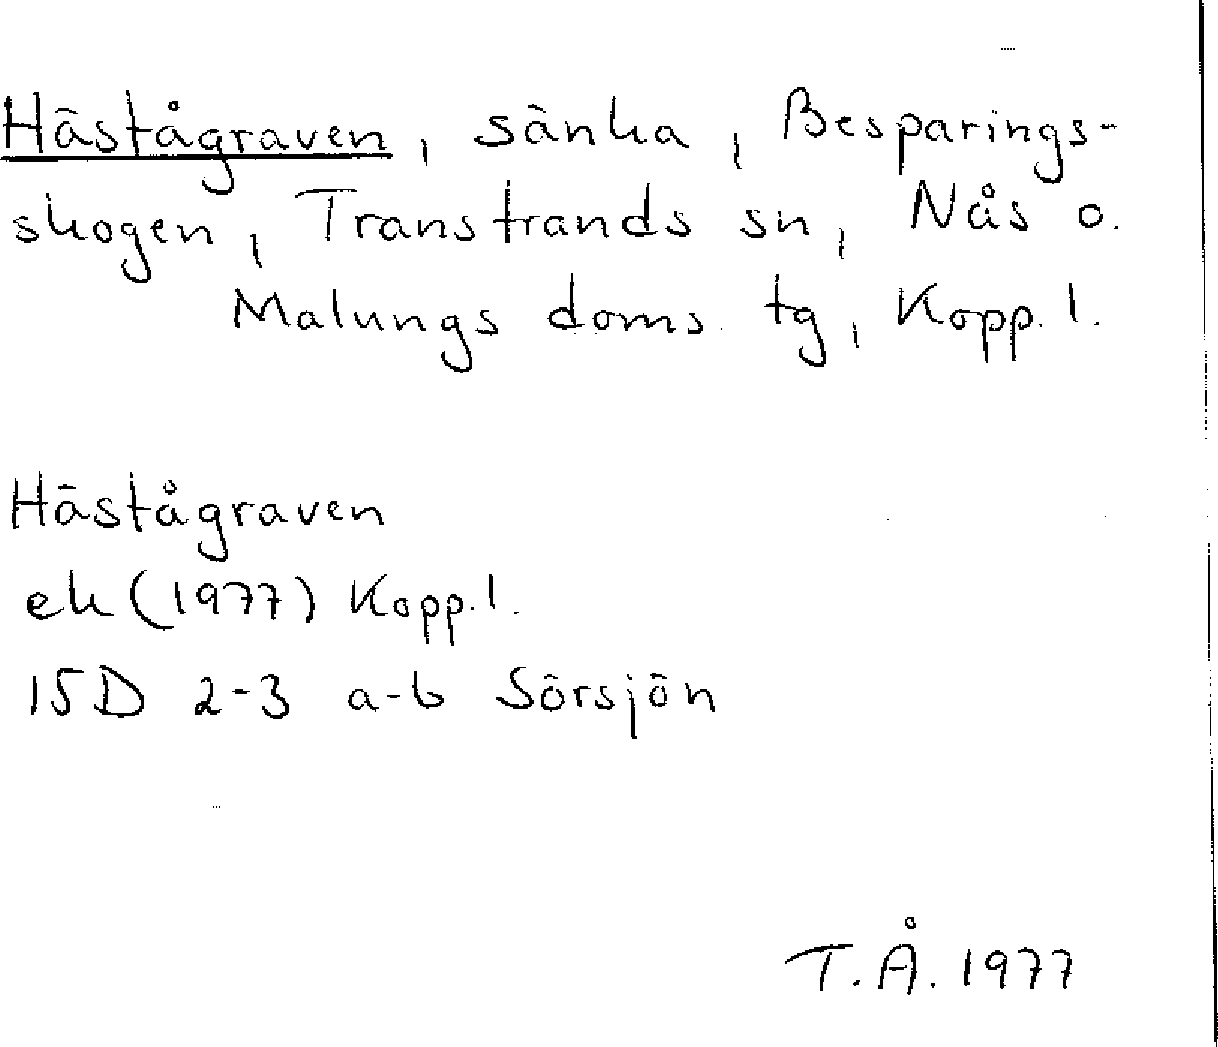 Hästågraven, sänka, Besparings-
skogen, Transtrands sn, Nås o.
Malungs doms. tg, Kopp. l.
Hästågraven
ek (1977) Kopp. l.
15D 2-3 a-b Sörsjön
T.Å. 1977